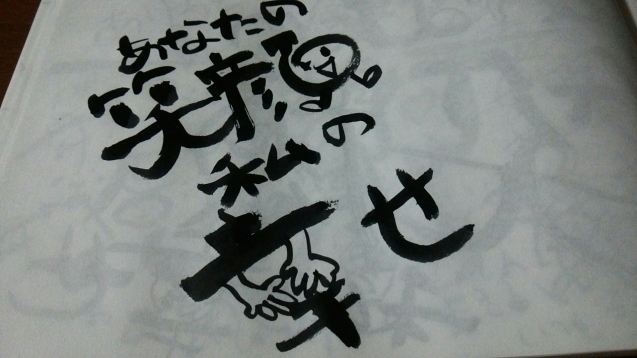 あなたの
笑顔
私の
幸せ